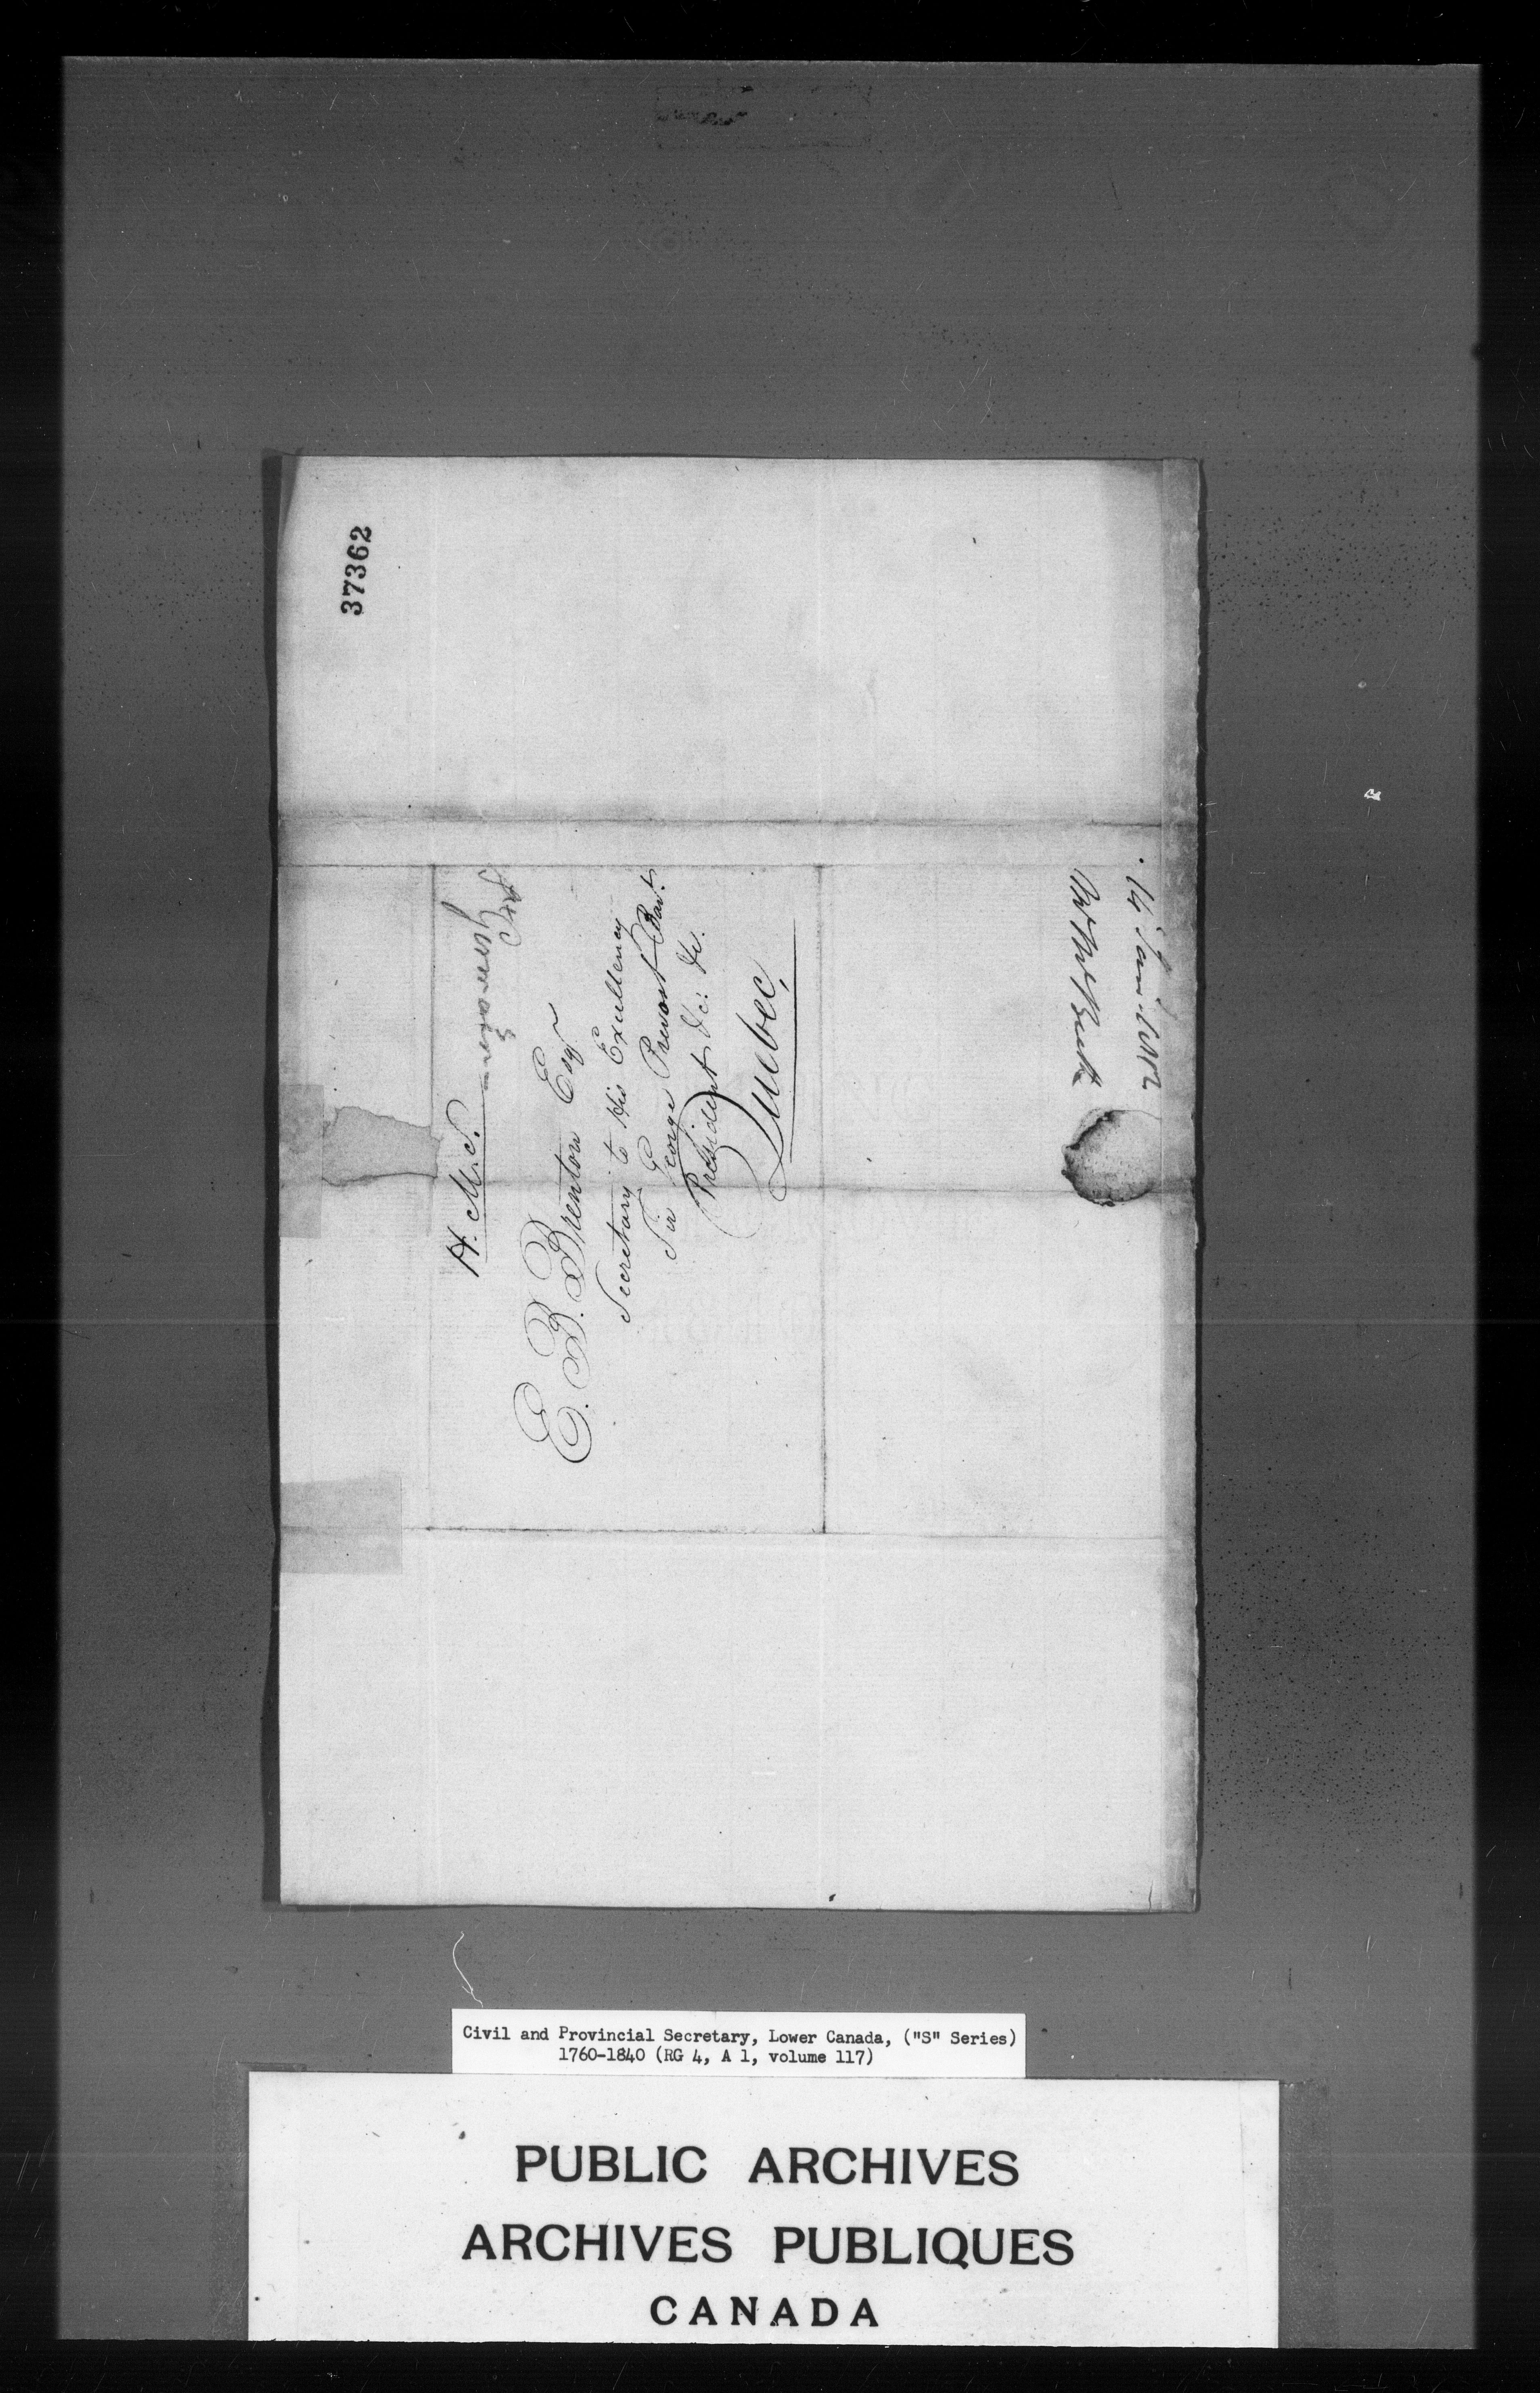 37362
H. M. S.
E. B. Brenton Esqr
Secretary to His Excellency
Sir George Prevost Bart.
President &c: &c.
Quebec,
14 Jany. 1812
Civil and Provincial Secretary, Lower Canada, ("S" Series)
1760-1840 (RG 4, A 1, volume 117)
PUBLIC ARCHIVES
ARCHIVES PUBLIQUES
CANADA